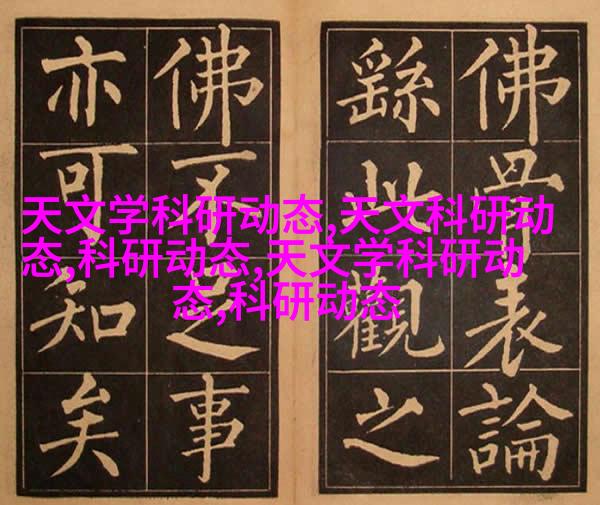 佛骨表論
繇此觀之
佛不足事
亦可知矣
天文学科研动态,天文科研动
态,科研动态,天文学科研动
态,科研动态